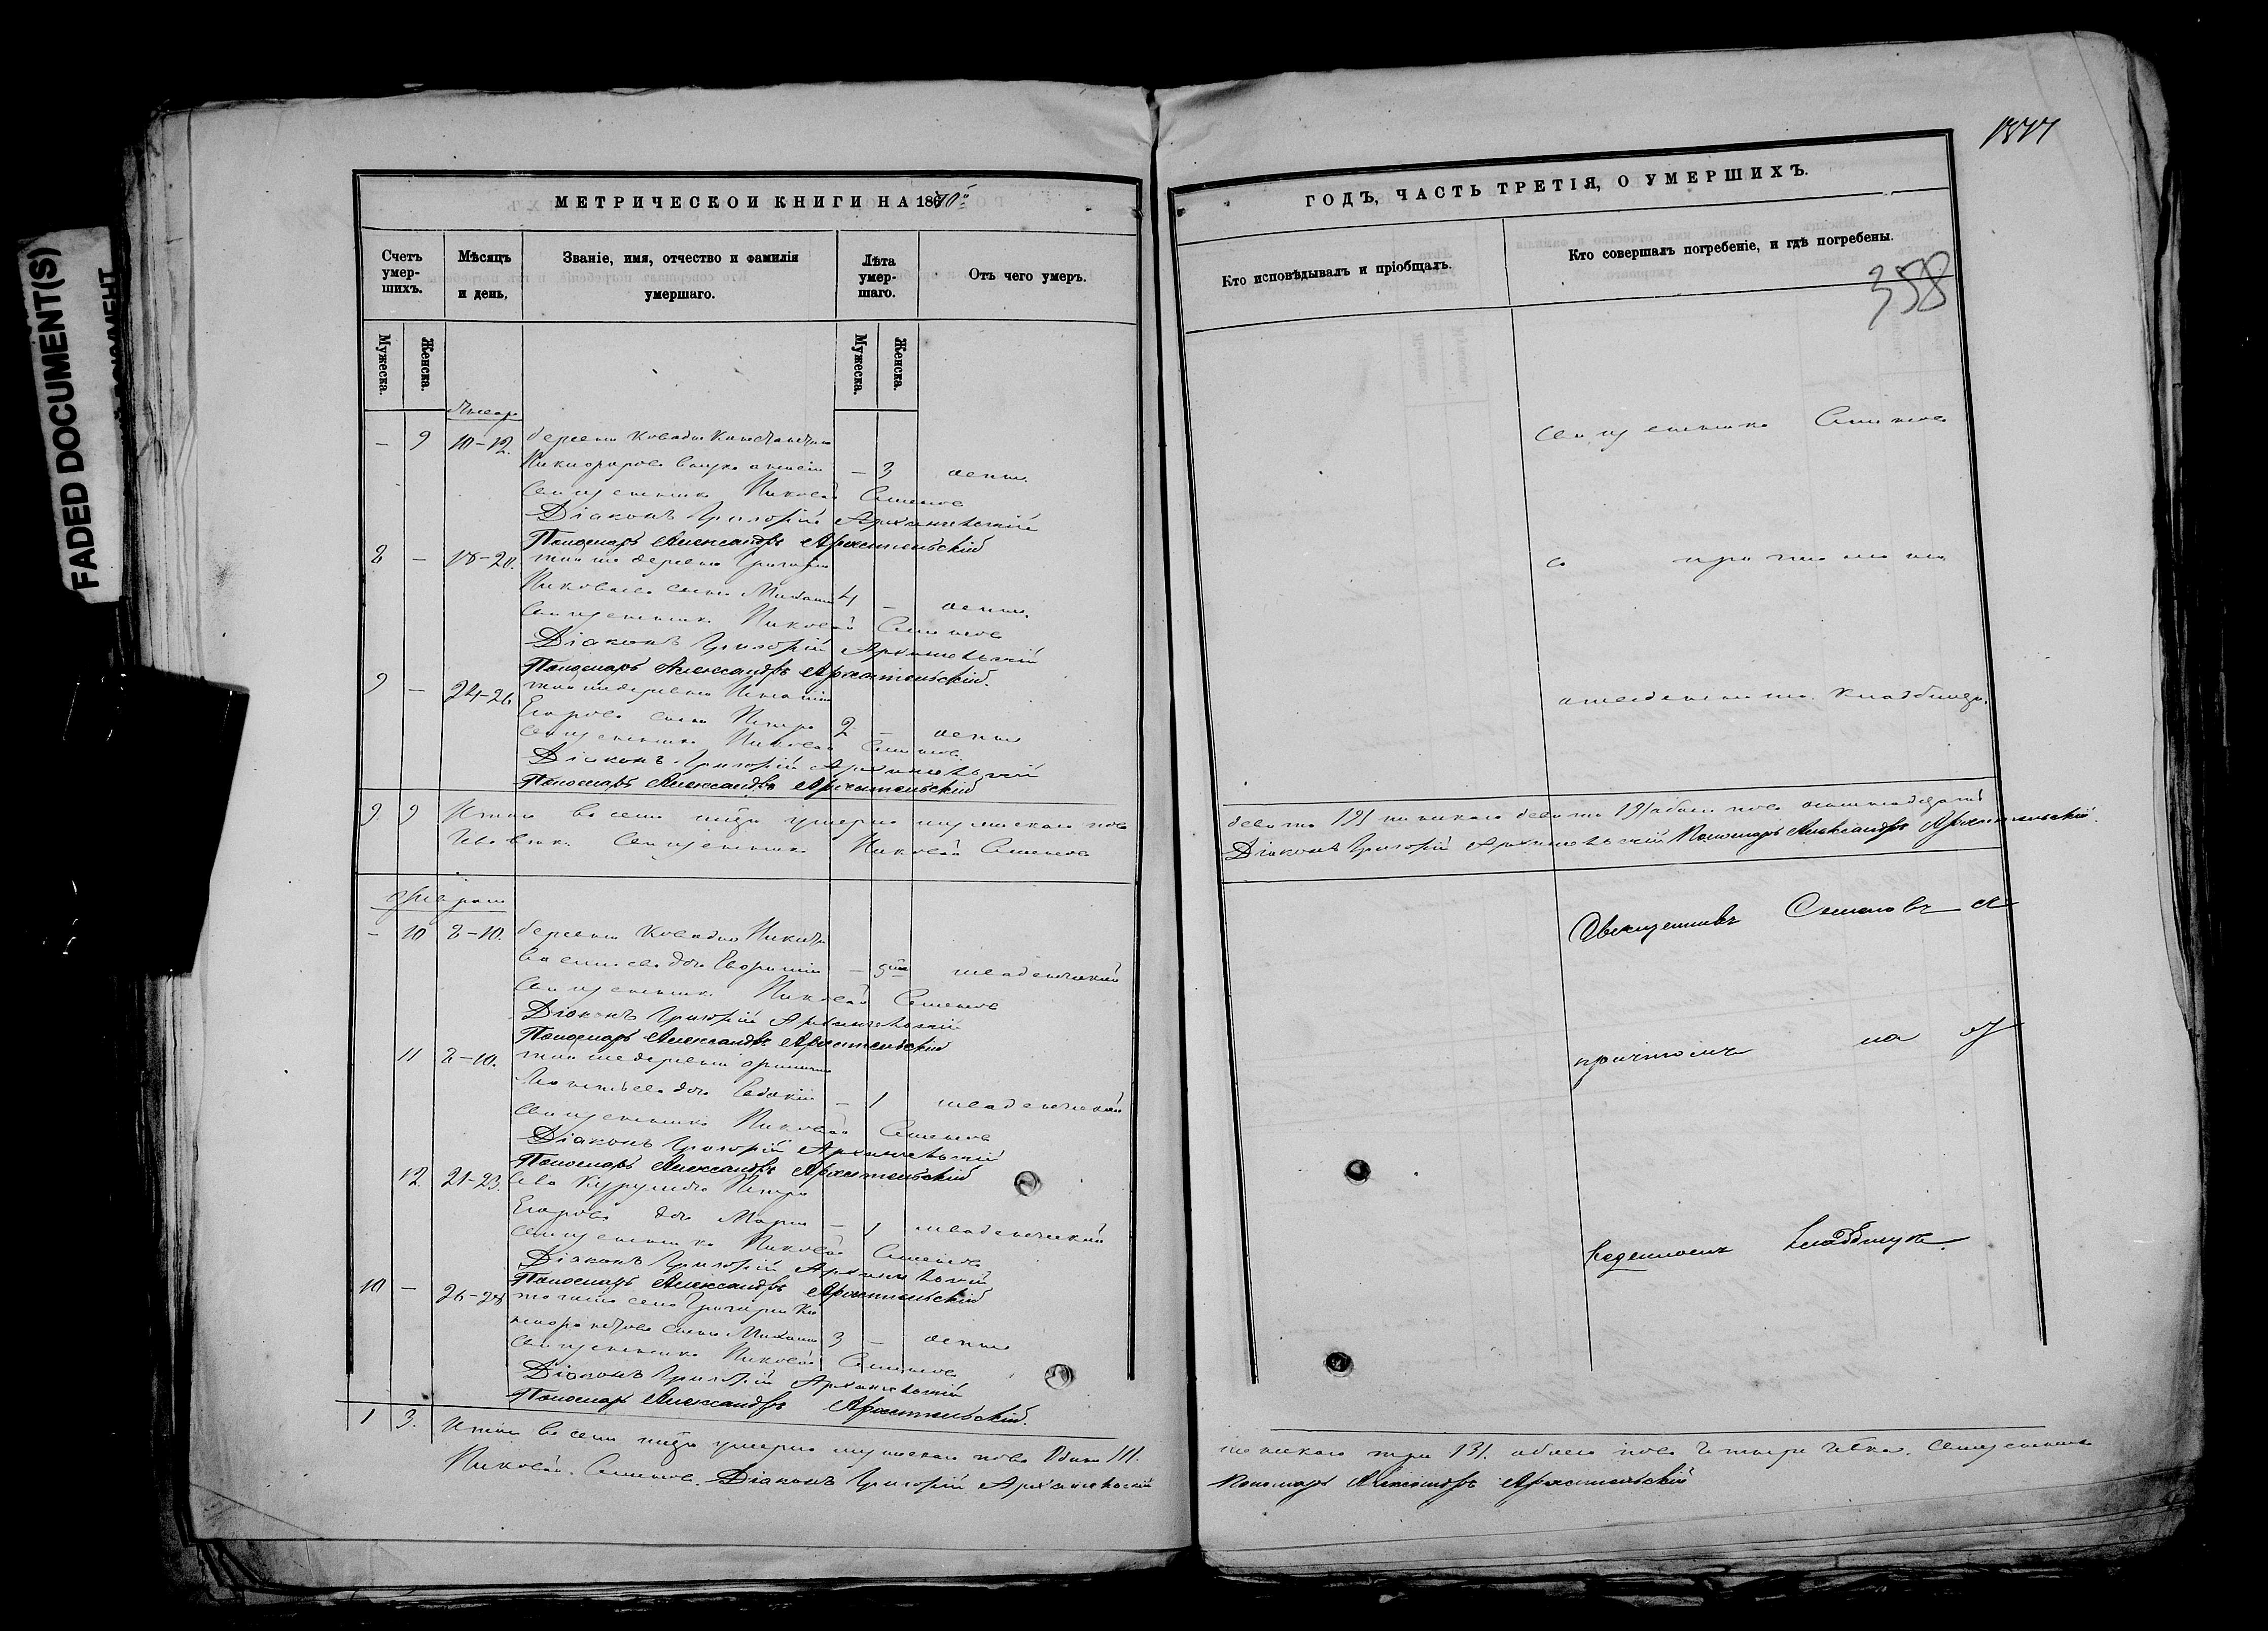 FADED DOCUMENT(S)
МЕТРИЧЕСКОЙ КНИГИ НА 1870
Счетъ умер-шихъ.
Мѣсяцъ и день.
Званіе, имя, отчество и фамилія умершаго.
Лѣта умер-шаго.
Отъ чего умеръ.
Мужеска.
Женска.
Мужеска.
Женска.
Январь
— 9 10–12. деревни Константина
Никифорова внука — 3 оспы.
Священникъ Николай Семеновъ
Діаконъ Григорій Архангельскій
Пономарь Александръ Архангельскій
8 — 18–20. той же деревни Григорія
Николаева сынъ Михаилъ 4 — оспы.
Священникъ Николай Семеновъ
Діаконъ Григорій Архангельскій
Пономарь Александръ Архангельскій.
9 — 24–26 той же деревни
Егорова сынъ Петръ 2 — оспы
Священникъ Николай Семеновъ.
Діаконъ Григорій Архангельскій
Пономарь Александръ Архангельскій
9. 9 Итого въ семъ м-цѣ умерло мужескаго пола
Священникъ Николай Семеновъ
Февраль
— 10 8–10. деревни Никиты
дочь — младенческой
Священникъ Николай Семеновъ
Діаконъ Григорій Архангельскій
Пономарь Александръ Архангельскій
11 8–10. той же деревни
дочь Евдокія — 1 младенческой
Священникъ Николай Семеновъ
Діаконъ Григорій Архангельскій
Пономарь Александръ Архангельскій
12 21–23. Петра
Егорова дочь Марія — 1 младенческой
Священникъ Николай Семеновъ
Діаконъ Григорій Архангельскій
Пономарь Александръ Архангельскій
10 — 26–28 того же села Григорія
сынъ Михаилъ 3 — оспы
Священникъ Николай Семеновъ
Діаконъ Григорій Архангельскій
Пономарь Александръ Архангельскій.
1 3. Итого въ семъ м-цѣ умерло мужескаго пола одинъ /1/.
Николай Семеновъ. Діаконъ Григорій Архангельскій
1877
ГОДЪ, ЧАСТЬ ТРЕТІЯ, О УМЕРШИХЪ.
Кто исповѣдывалъ и пріобщалъ.
Кто совершалъ погребеніе, и гдѣ погребены.
358
Священникъ Семеновъ
съ причтомъ на
кладбищѣ.
девять /9/ женскаго девять /9/ обоего пола восемнадцать
Діаконъ Григорій Архангельскій Пономарь Александръ Архангельскій.
Священникъ Семеновъ съ
причтомъ на
кладбищѣ.
женскаго три /3/. обоего пола четыре Священникъ
Пономарь Александръ Архангельскій